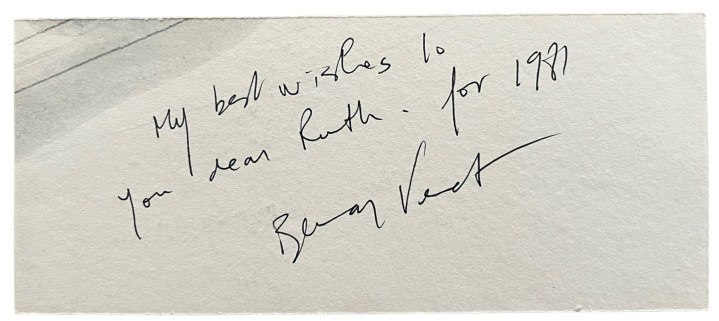 My best wishes to
you dear Ruth. for 1981
Bernar Venet